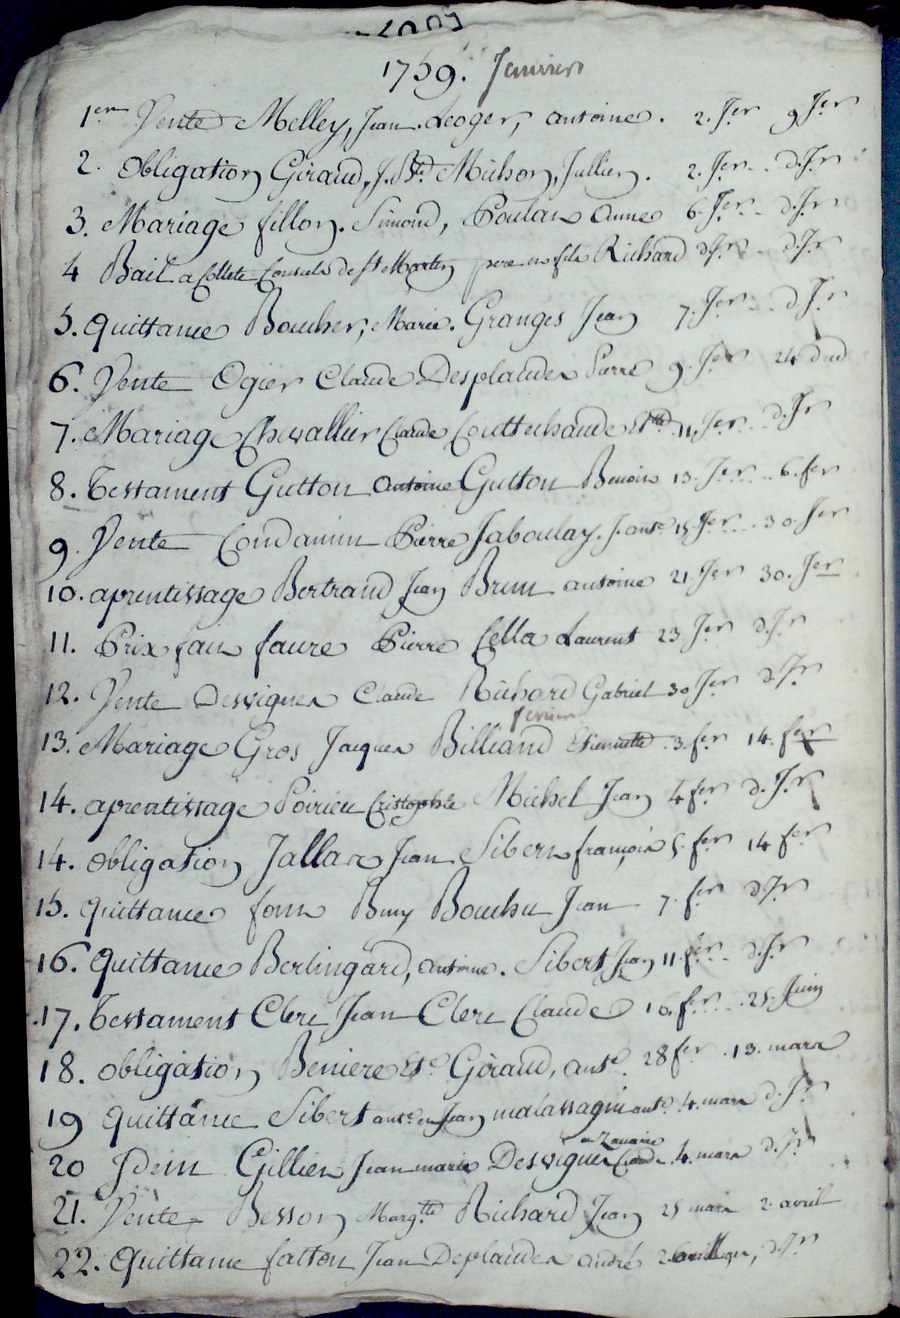 1759. Janvier
1er Vente Melley, Jean. Leoger, antoine. 2. Jer 9 Jer
2. obligation Giraud, J. Bte. Michon, Jullien. 2. Jer. d. Jr
3. Mariage fillon. Simond, Poulat anne 6. Jer. d. Jr
4 Bail a Collete Consuls de St Martin pere et fils Richard d. Jr d. Jr
5. quittance Boucher, Marie. Granges Jean 7. Jer d Jr
6. Vente Ogier Claude Desplaudes Pierre 9. Jer 24 dud
7. Mariage Chevallier Claude Couttechaude 11. Jer d. Jr
8. testament Gutton antoine Gutton Benoit 13. Jer 6. fer
9. Vente Condamin Pierre Jaboulay. J. ante 15. Jer 30. Jer
10. aprentissage Bertrand Jean Brun antoine 21. Jer 30. Jer
11. Prix fait faure Pierre Cella Laurent 23. Jer d. Jr
12. Vente Desvignes Claude Richard Gabriel 30 Jer d. Jr
fevrier
13. Mariage Gros Jacques Billiand Etiennette 3. fer 14. fer
14. aprentissage Poirieu Cristophle Michel Jean 4 fer d. Jr
14. obligation Jallare Jean Sibert françois 5. fer 14 fer
15. quittance Bouchu Jean 7. fer d. Jr
16. quittance Berlingard, antoine. Sibert Jean 11. fer d. Jr
17. testament Clerc Jean Clerc Claude 16. fer 25. Juin
18. obligation Beniere Ete. Giraud, ante. 28 fer 13. mars
19 quittance Sibert ante et Jean malassagni ante. 4. mars d. Jr
20 Idem Gillier Jean marie Desvignes Claude 4. mars d. Jr
21. Vente Besson Margtte Richard Jean 25 mars 2. avril
22. quittance fatton Jean Deplaudes andré d. Jr